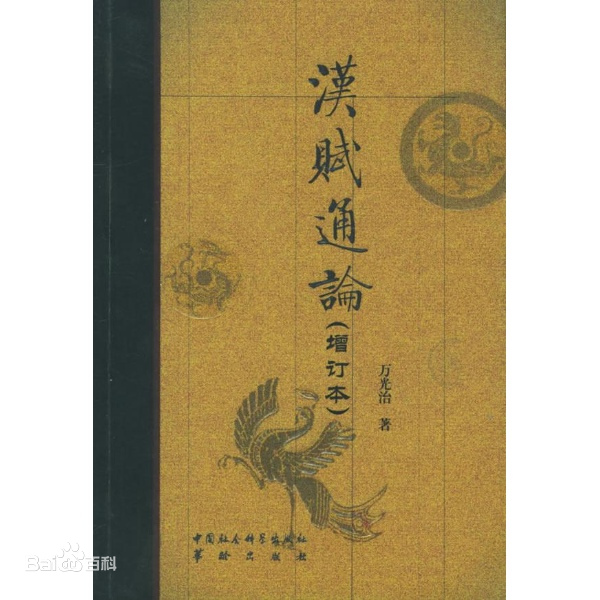 漢賦通論
(增订本)
万光治 著
中国社会科学出版社
华龄出版社
Bai百科